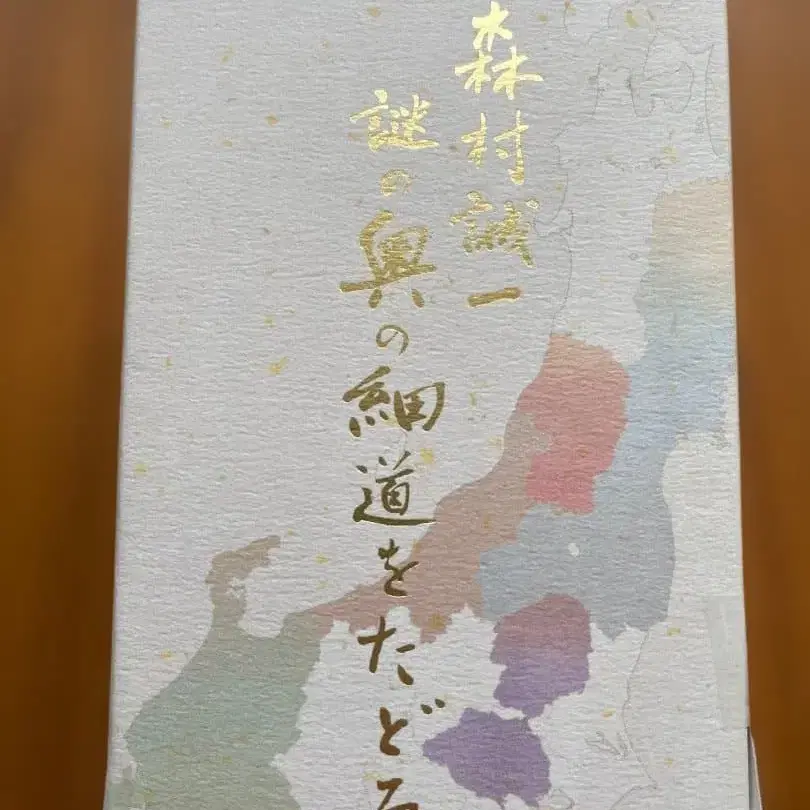 森村誠一
謎の奥の細道をたどる